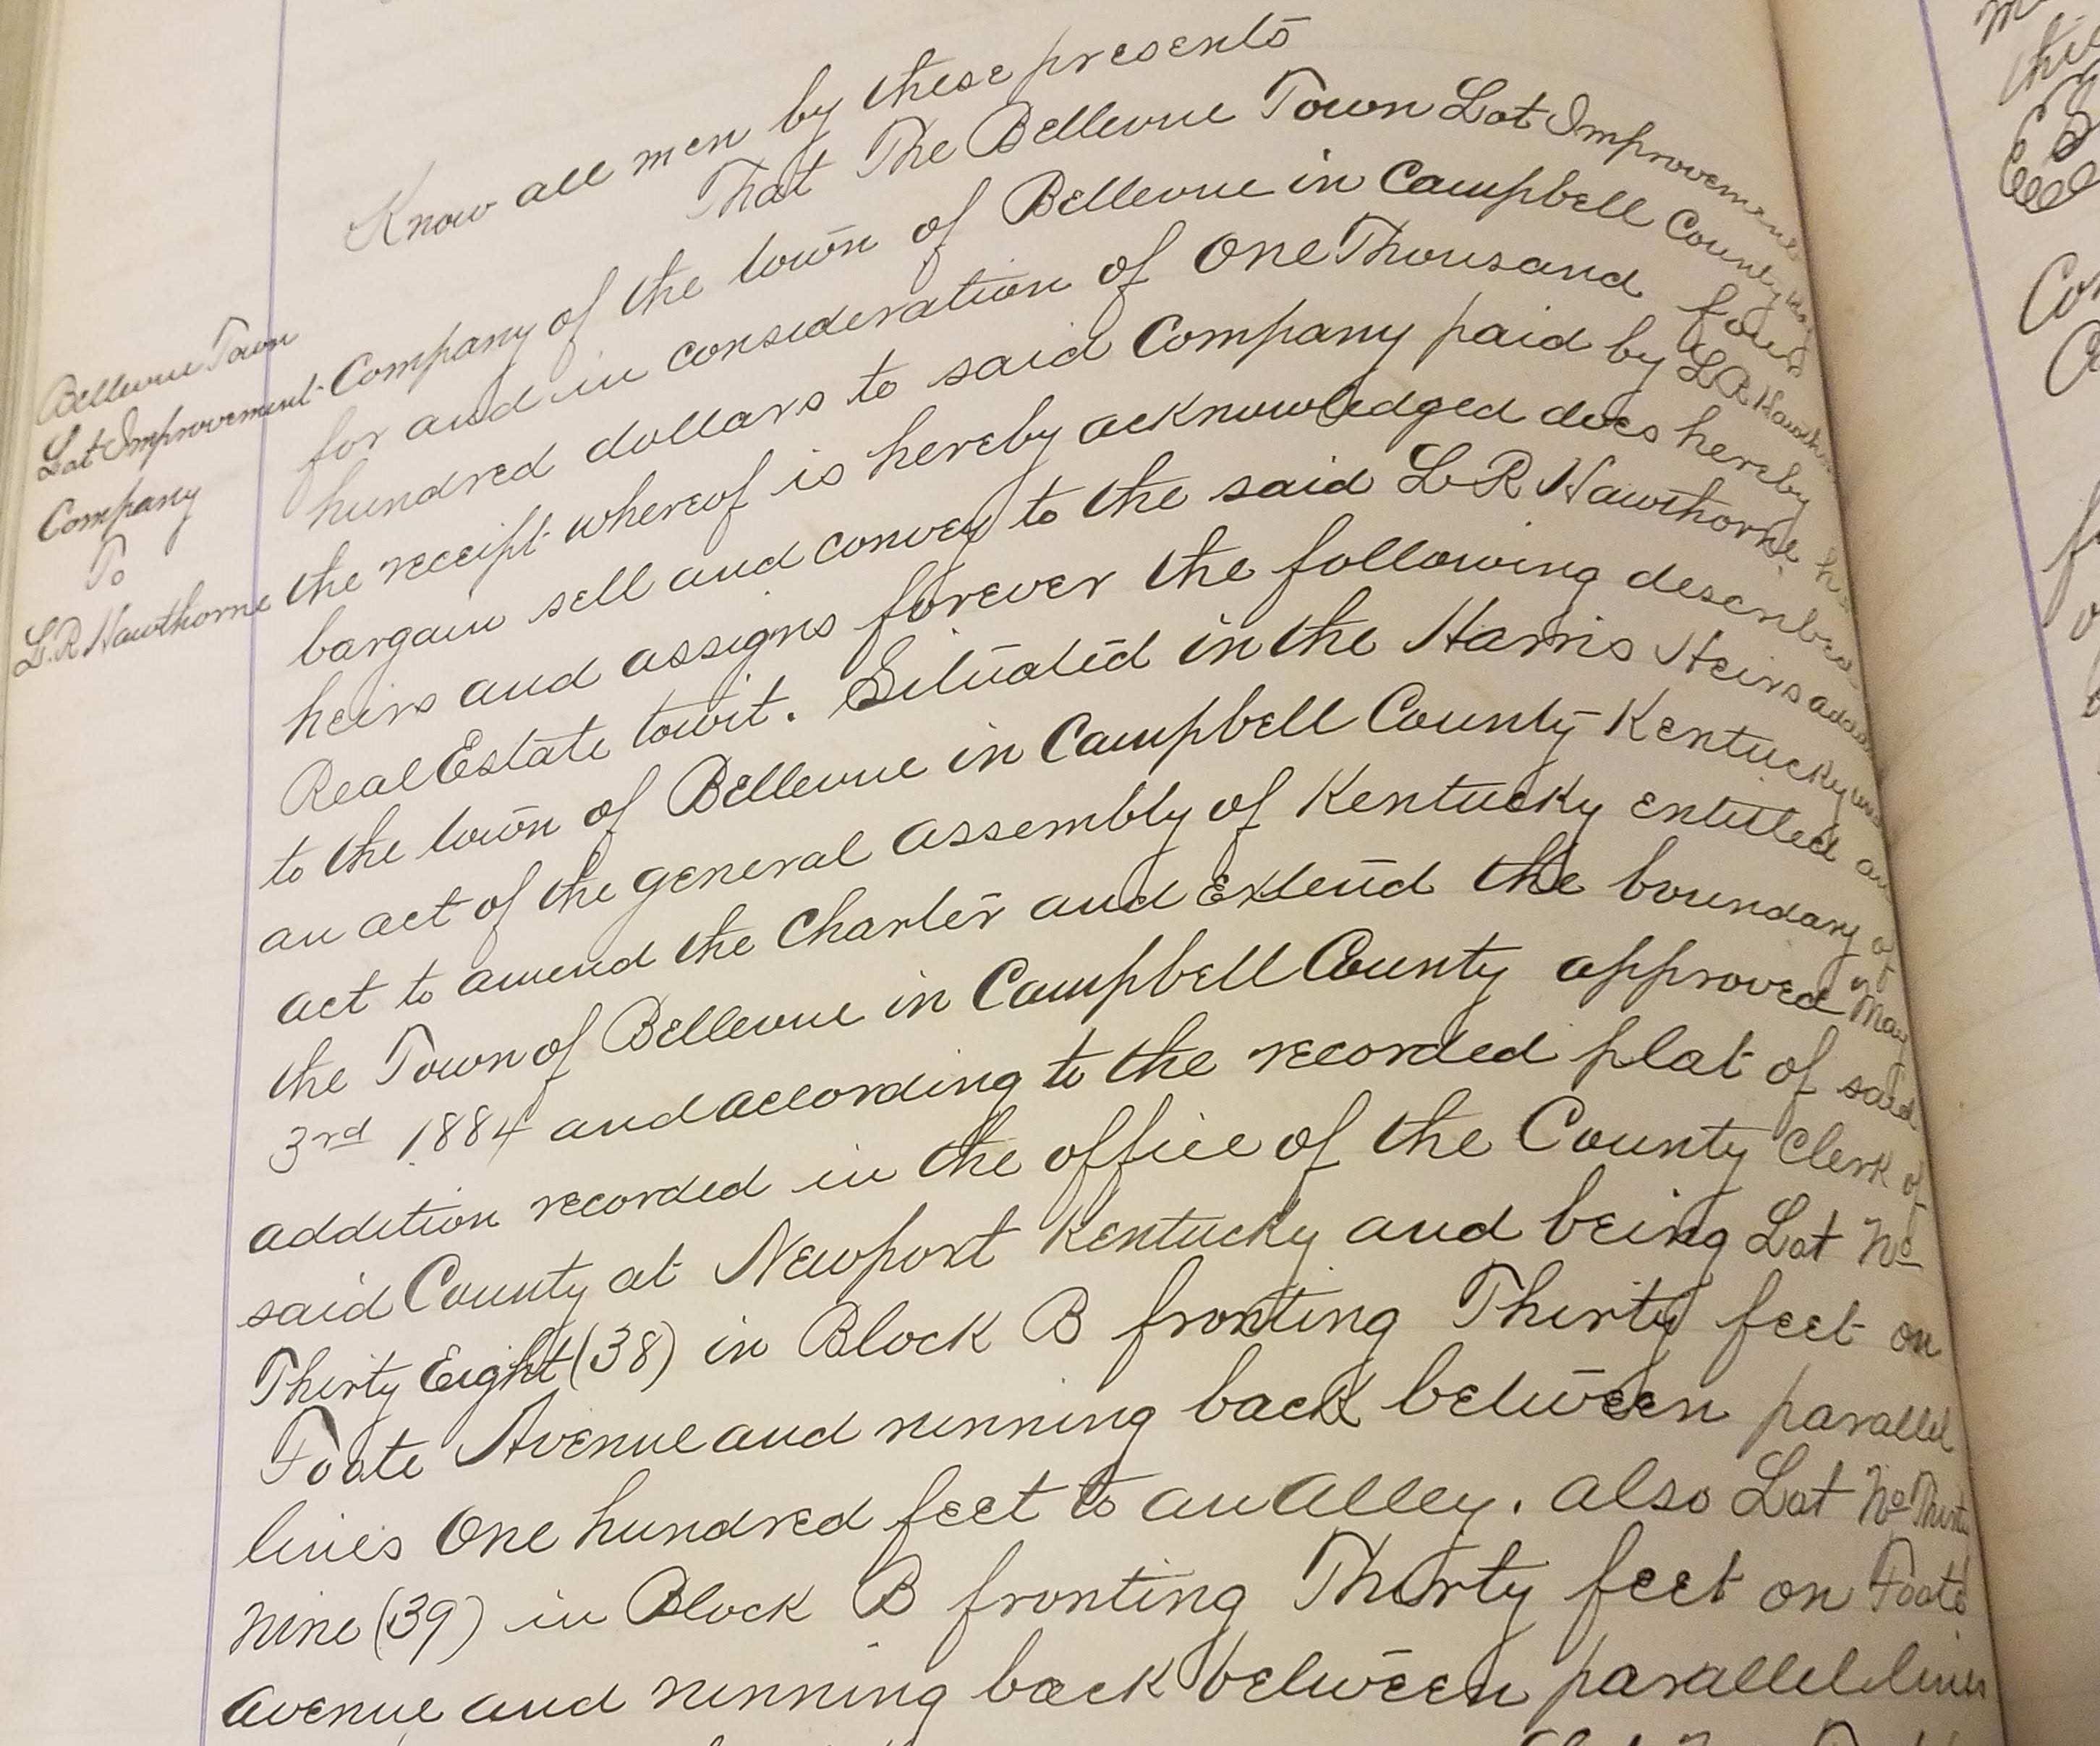 Know all men by these presents
That The Bellevue Town Lot Improvement
Bellevue Town
Lot Improvement
Company
To
L.R Hawthorne
Company of the town of Bellevue in Campbell County
for and in consideration of One Thousand four
hundred dollars to said Company paid by L R Hawthorne
the receipt whereof is hereby acknowledged does hereby
bargain sell and convey to the said L R Hawthorne his
heirs and assigns forever the following described
Real Estate towit. Situated in the Harris Heirs
to the town of Bellevue in Campbell County Kentucky
an act of the general assembly of Kentucky entitled an
act to amend the Charter and Extend the boundary of
the Town of Bellevue in Campbell County approved May
3rd 1884 and according to the recorded plat of said
addition recorded in the office of the County Clerk of
said County at Newport Kentucky and being Lot No
Thirty Eight (38) in Block B fronting Thirty feet on
Foote Avenue and running back between parallel
lines One hundred feet to an Alley. also Lot No Thirty
Nine (39) in Block B fronting Thirty feet on Foote
Avenue and running back between parallel lines